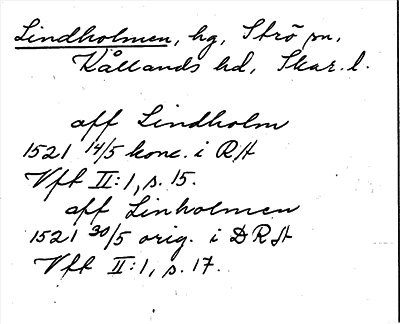 Lindholmen, hg, Strö sn,
Kållands hd, Skar. l.
aff Lindholm
1521 14/5 konc. i RA
Vft II:1, s. 15.
aff Linholmen
1521 30/5 orig. i DRA
Vft II:1, s. 17.